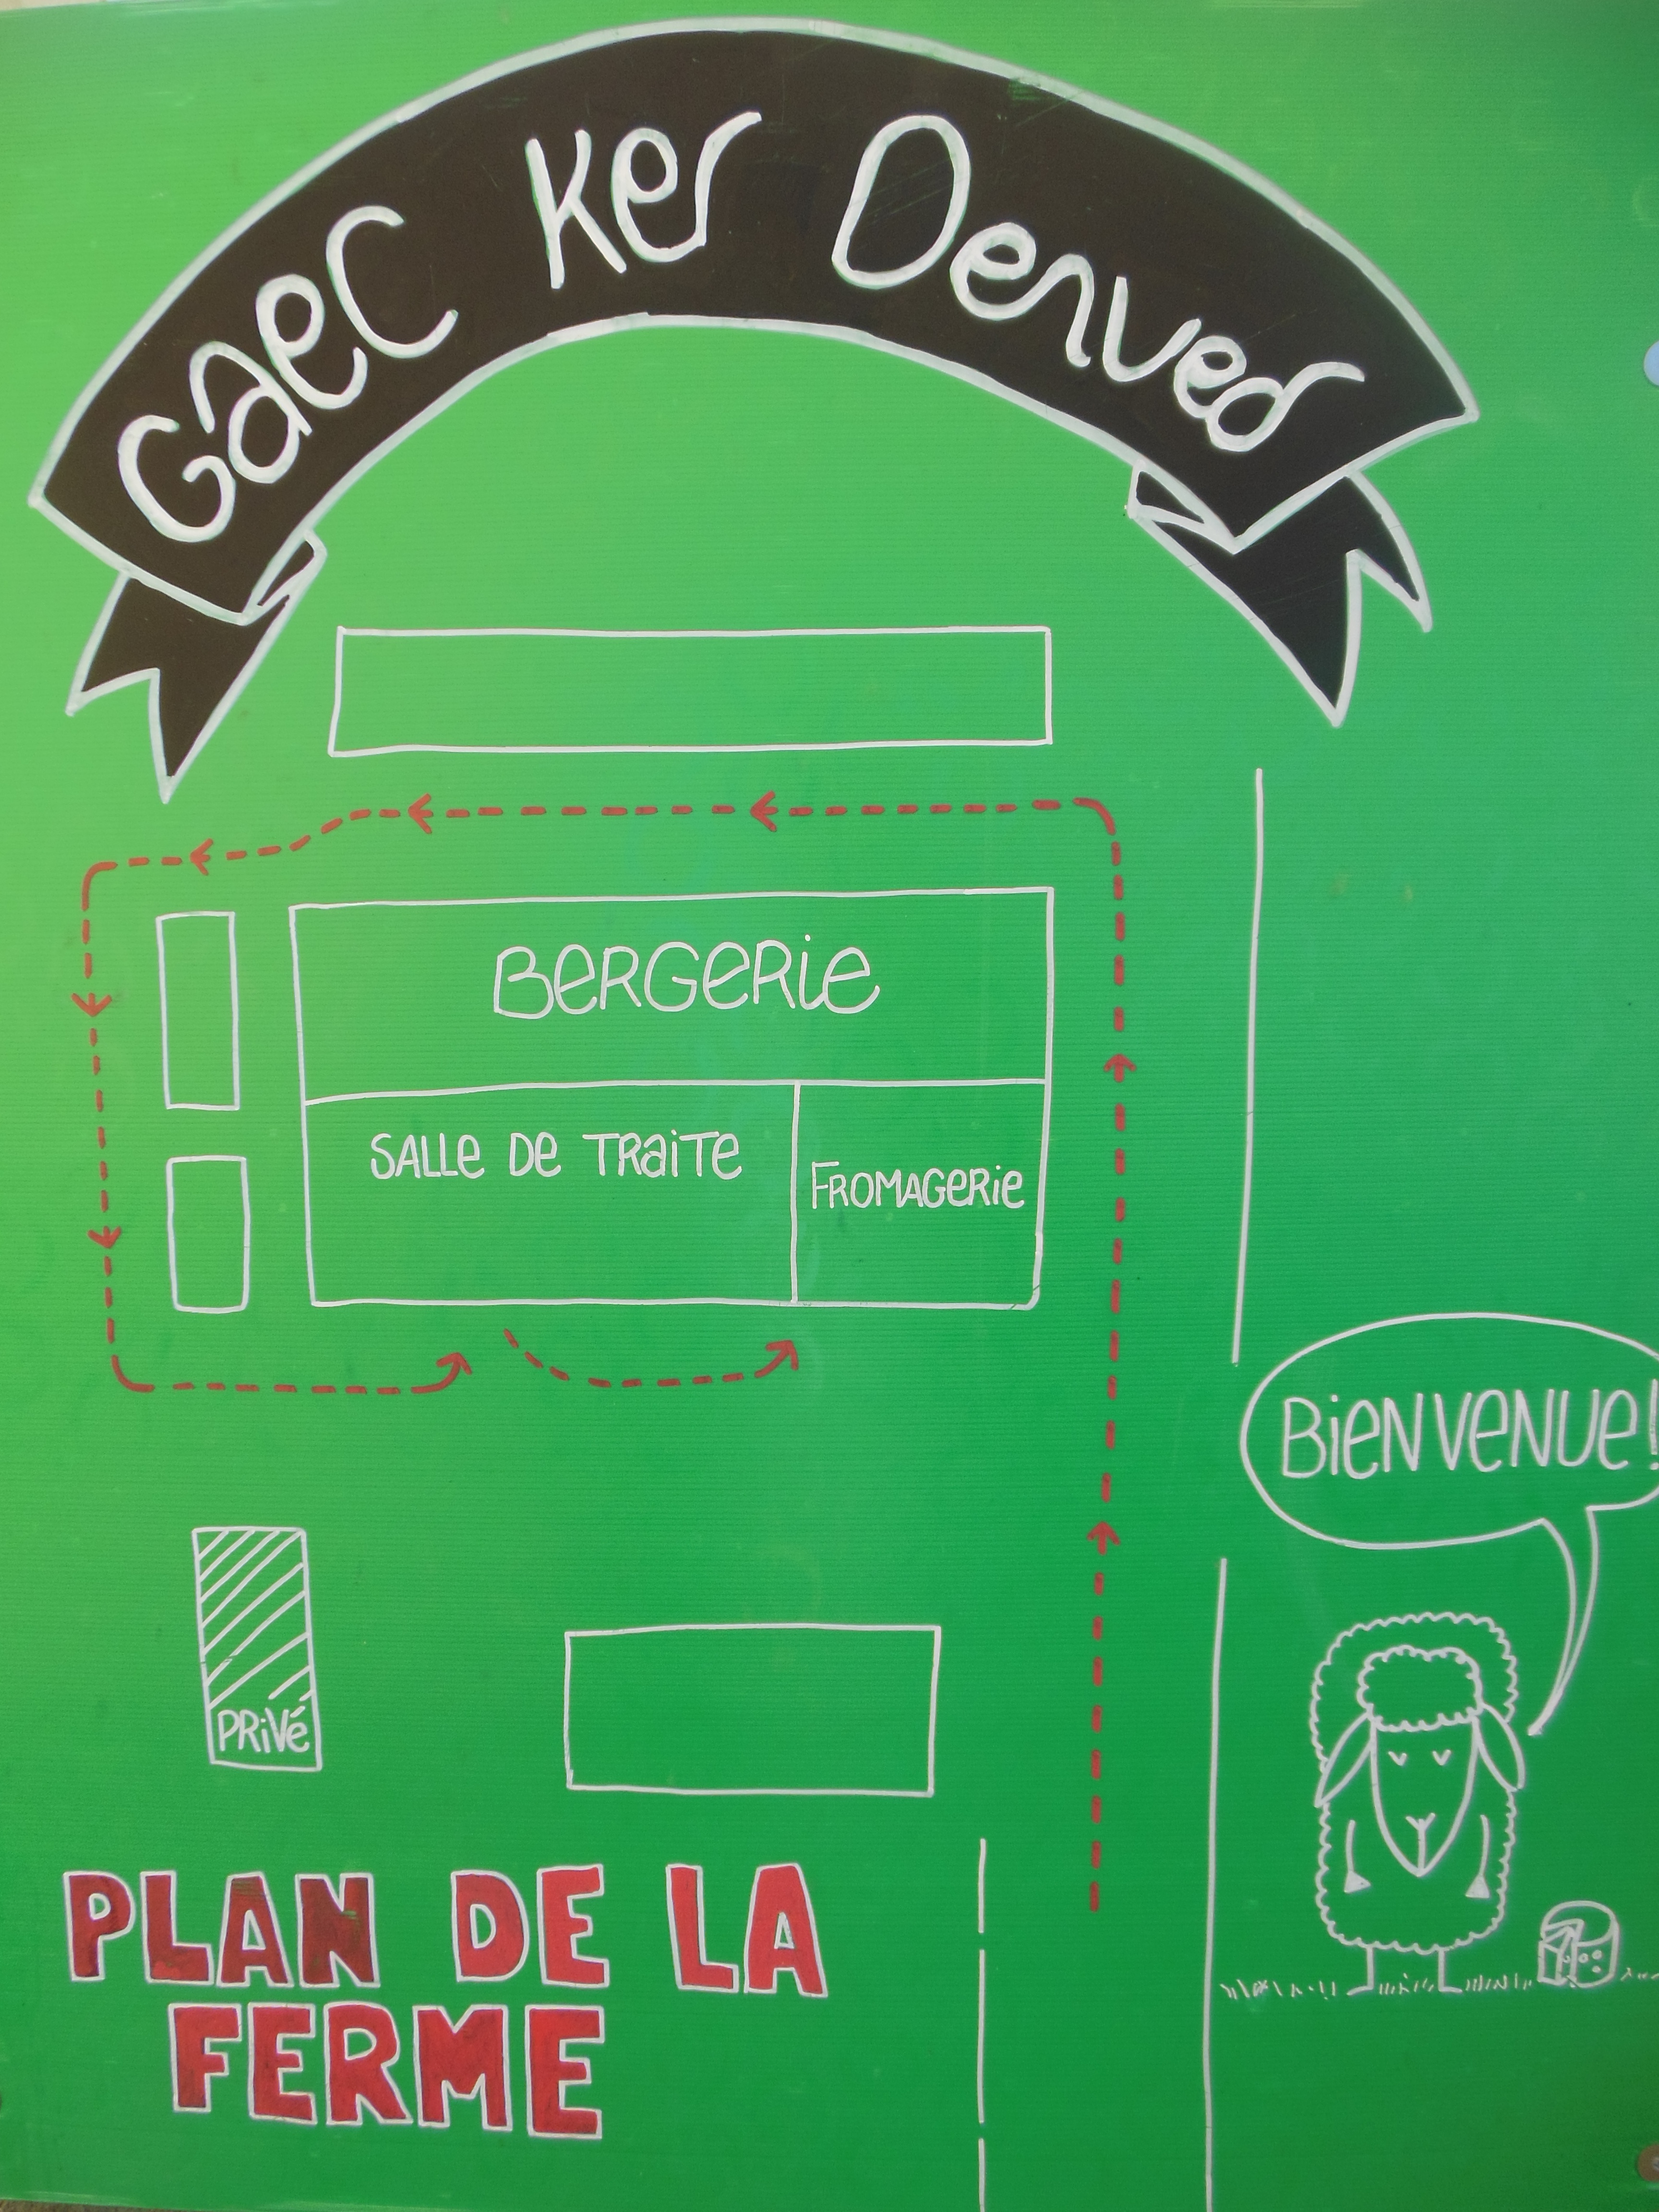 Gaec Ker Denved
BERGERIE
SALLE DE TRAITE
FROMAGERIE
BIENVENUE!
PRIVÉ
PLAN DE LA
FERME